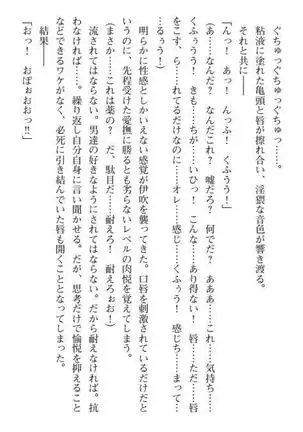 ぐちゅっぐちゅっぐちゅっ……。
粘液に塗れた亀頭と唇が擦れ合い、淫猥な音色が響き渡る。
それと共に――
「んっ！　あっ！　んっふ！　くふうう！」
（あ……なんだ？　なんだこれ？　嘘だろ？　何でだ？　あああ……これ……気持ち……
くふううう！　きも……ちが……いひっ！　こんな……あり得ない！　唇だ……唇
をこす、ら……れてるだけなのに……オレ……感じ……くふう！　感じち……まって……
るぅう！）
明らかに性感としかいえない感覚が伊吹を襲ってきた。口唇を刺激されているだけだと
いうのに、先程受けた愛撫に勝るとも劣らないレベルの肉悦を覚えてしまう。
（まさか……これは薬の？　だ、駄目だ……耐えろ！　耐えろぉお！）
流されてはならない。男達の好きなようにされてはならない。だから耐えなければ。抗
わなければ……。繰り返し自分自身に言い聞かせる。だが、思考だけで愉悦を抑えること
などできるワケがなく、必死に引き結んでいた唇も開くこととなってしまった。
結果――
「おっ！　おぼぉおおおっ!!」